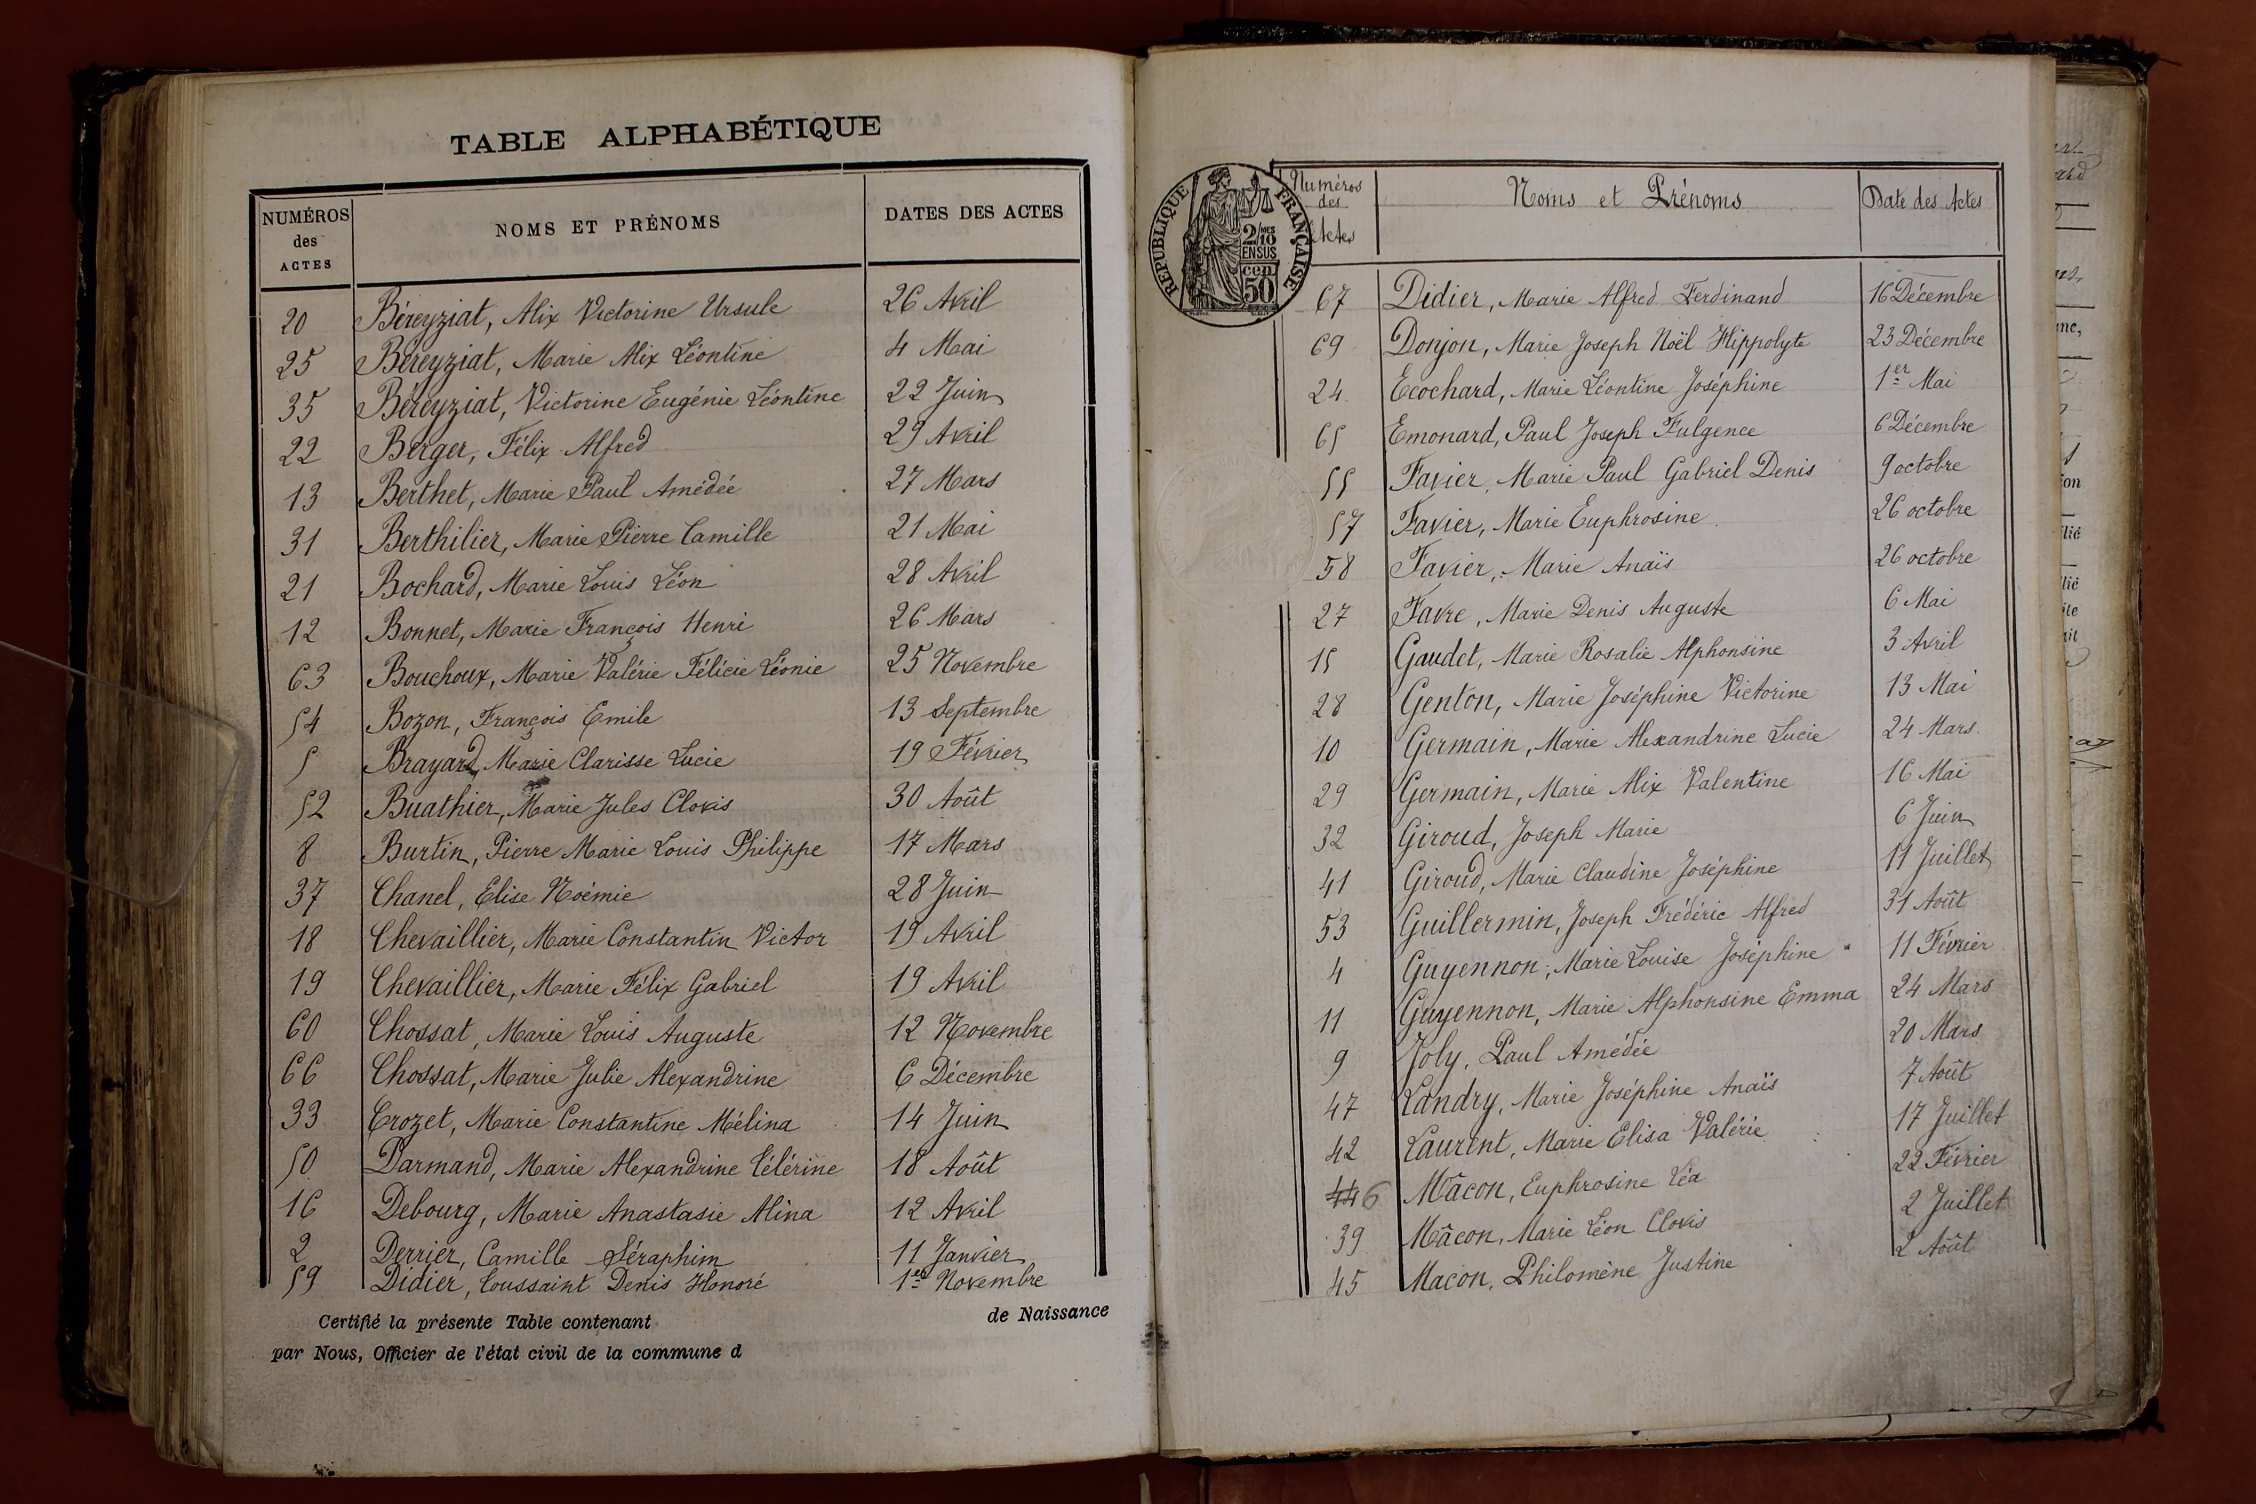 TABLE ALPHABÉTIQUE
NUMÉROS des ACTES NOMS ET PRÉNOMS DATES DES ACTES
20 Béreyziat, Alix Victorine Ursule 26 Avril
25 Béreyziat, Marie Alix Léontine 4 Mai
35 Béreyziat, Victorine Eugénie Léontine 22 Juin
22 Berger, Félix Alfred 29 Avril
13 Berthet, Marie Paul Amédée 27 Mars
31 Berthilier, Marie Pierre Camille 21 Mai
21 Bochard, Marie Louis Léon 28 Avril
12 Bonnet, Marie François Henri 26 Mars
63 Bouchoux, Marie Valérie Félicie Léonie 25 Novembre
54 Bozon, François Emile 13 Septembre
5 Brayard, Marie Clarisse Lucie 19 Février
52 Buathier, Marie Jules Clovis 30 Août
8 Burtin, Pierre Marie Louis Philippe 17 Mars
37 Chanel, Elise Noémie 28 Juin
18 Chevaillier, Marie Constantin Victor 19 Avril
19 Chevaillier, Marie Félix Gabriel 19 Avril
60 Chossat, Marie Louis Auguste 12 Novembre
66 Chossat, Marie Julie Alexandrine 6 Décembre
33 Crozet, Marie Constantine Mélina 14 Juin
50 Darmand, Marie Alexandrine Célérine 18 Août
16 Debourg, Marie Anastasie Alina 12 Avril
2 Derrier, Camille Séraphim 11 Janvier
59 Didier, Toussaint Denis Honoré 1er Novembre
Certifié la présente Table contenant de Naissance
par Nous, Officier de l'état civil de la commune d
RÉPUBLIQUE FRANÇAISE
2/10 MES
EN SUS
50 cen
Numéros des Actes Noms et Prénoms Date des Actes
67 Didier, Marie Alfred Ferdinand 16 Décembre
69 Donjon, Marie Joseph Noël Hippolyte 23 Décembre
24 Ecochard, Marie Léontine Joséphine 1er Mai
65 Emonard, Paul Joseph Fulgence 6 Décembre
55 Favier, Marie Paul Gabriel Denis 9 octobre
57 Favier, Marie Euphrosine 26 octobre
58 Favier, Marie Anaïs 26 octobre
27 Favre, Marie Denis Auguste 6 Mai
15 Gaudet, Marie Rosalie Alphonsine 3 Avril
28 Genton, Marie Joséphine Victorine 13 Mai
10 Germain, Marie Alexandrine Lucie 24 Mars
29 Germain, Marie Alix Valentine 16 Mai
32 Giroud, Joseph Marie 6 Juin
41 Giroud, Marie Claudine Joséphine 11 Juillet
53 Guillermin, Joseph Frédéric Alfred 31 Août
4 Guyennon, Marie Louise Joséphine 11 Février
11 Guyennon, Marie Alphonsine Emma 24 Mars
9 Joly, Paul Amédée 20 Mars
47 Landry, Marie Joséphine Anaïs 7 Août
42 Laurent, Marie Elisa Valérie 17 Juillet
6 Mâcon, Euphrosine Léa 22 Février
39 Mâcon, Marie Léon Clovis 2 Juillet
45 Macon, Philomène Justine 2 Août